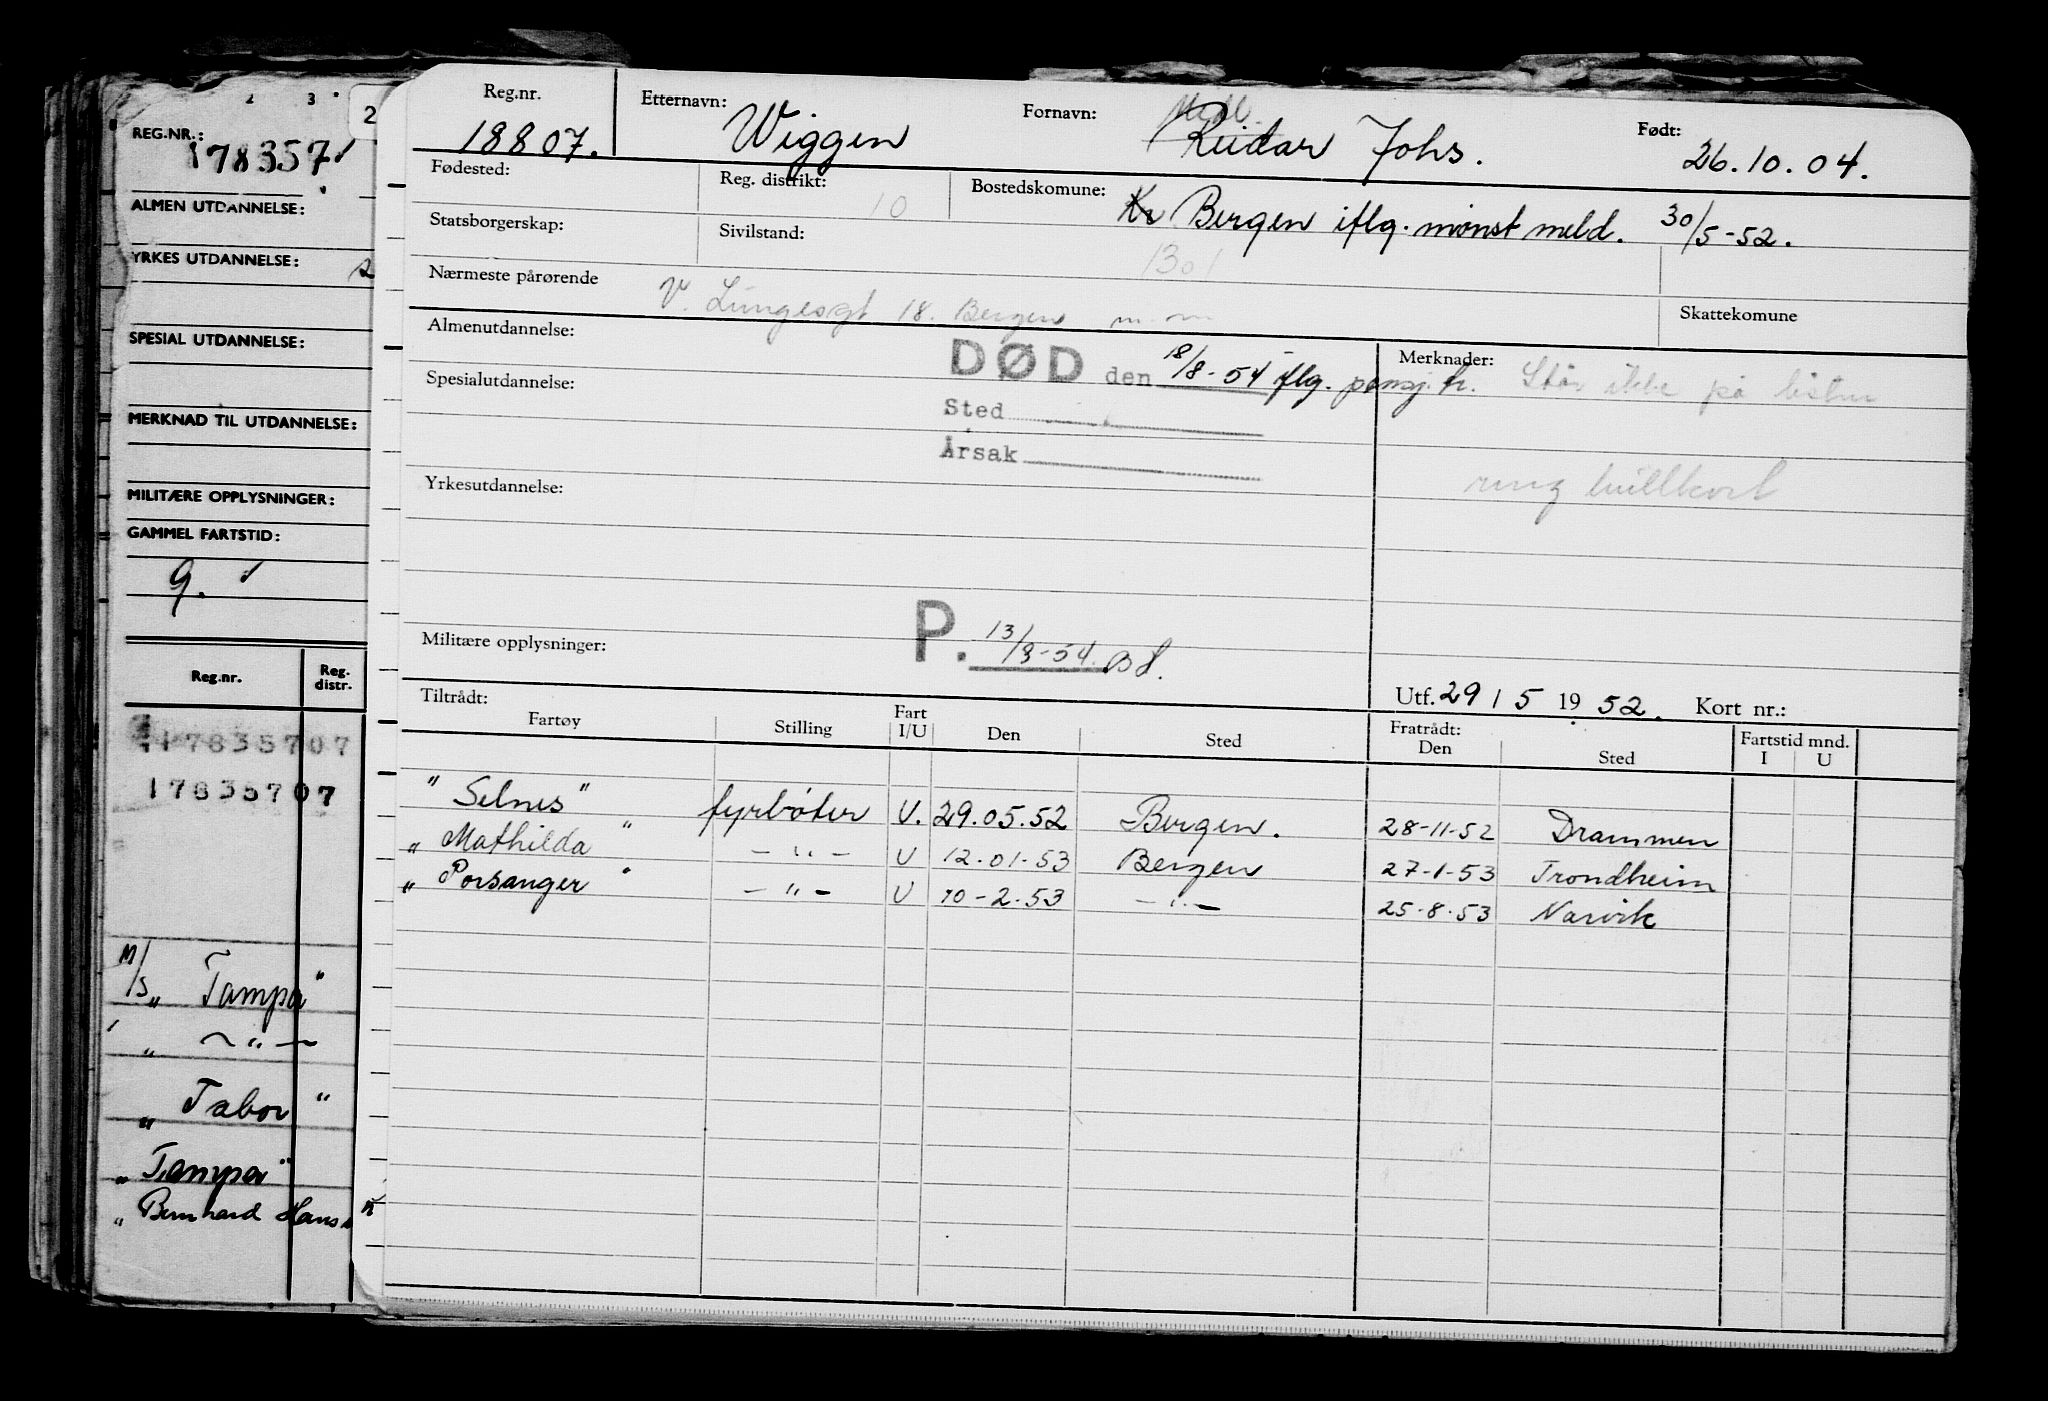 2 3
2
REG.NR.:
178357
ALMEN UTDANNELSE:
YRKES UTDANNELSE:
SPESIAL UTDANNELSE:
MERKNAD TIL UTDANNELSE:
MILITÆRE OPPLYSNINGER:
GAMMEL FARTSTID:
9.
Reg.nr. Reg. distr.
17835707
17835707
M/S „ Tampa "
„ — " —
„ Tabor "
„ Tampa "
„ Bernhard Hans
Reg.nr. Etternavn: Fornavn: Født:
18807. Wiggen Reidar Johs. 26.10.04.
Fødested: Reg. distrikt: 10 Bostedskomune:
Kr Bergen iflg. mønst meld. 30/5-52.
Statsborgerskap: Sivilstand: 1301
Nærmeste pårørende V. Lungegt 18. Bergen
Skattekomune
Almenutdannelse:
DØD den 18/8-54 iflg. pensj. tr.
Merknader: Står ikke på listen
Spesialutdannelse:
Sted
Årsak
Yrkesutdannelse:
ring hullkort
Militære opplysninger:
P. 13/8-54.
Utf. 29 / 5 1952. Kort nr.:
Tiltrådt: Fratrådt: Fartstid mnd.
Fartøy Stilling Fart I/U Den Sted Den Sted I U
" Selnes " fyrbøter U. 29.05.52 Bergen. 28-11-52 Drammen
„ Mathilda " — " — U 12.01.53 Bergen 27-1-53 Trondheim
„ Porsanger " — " — U 10-2.53 — " — 25-8-53 Narvik